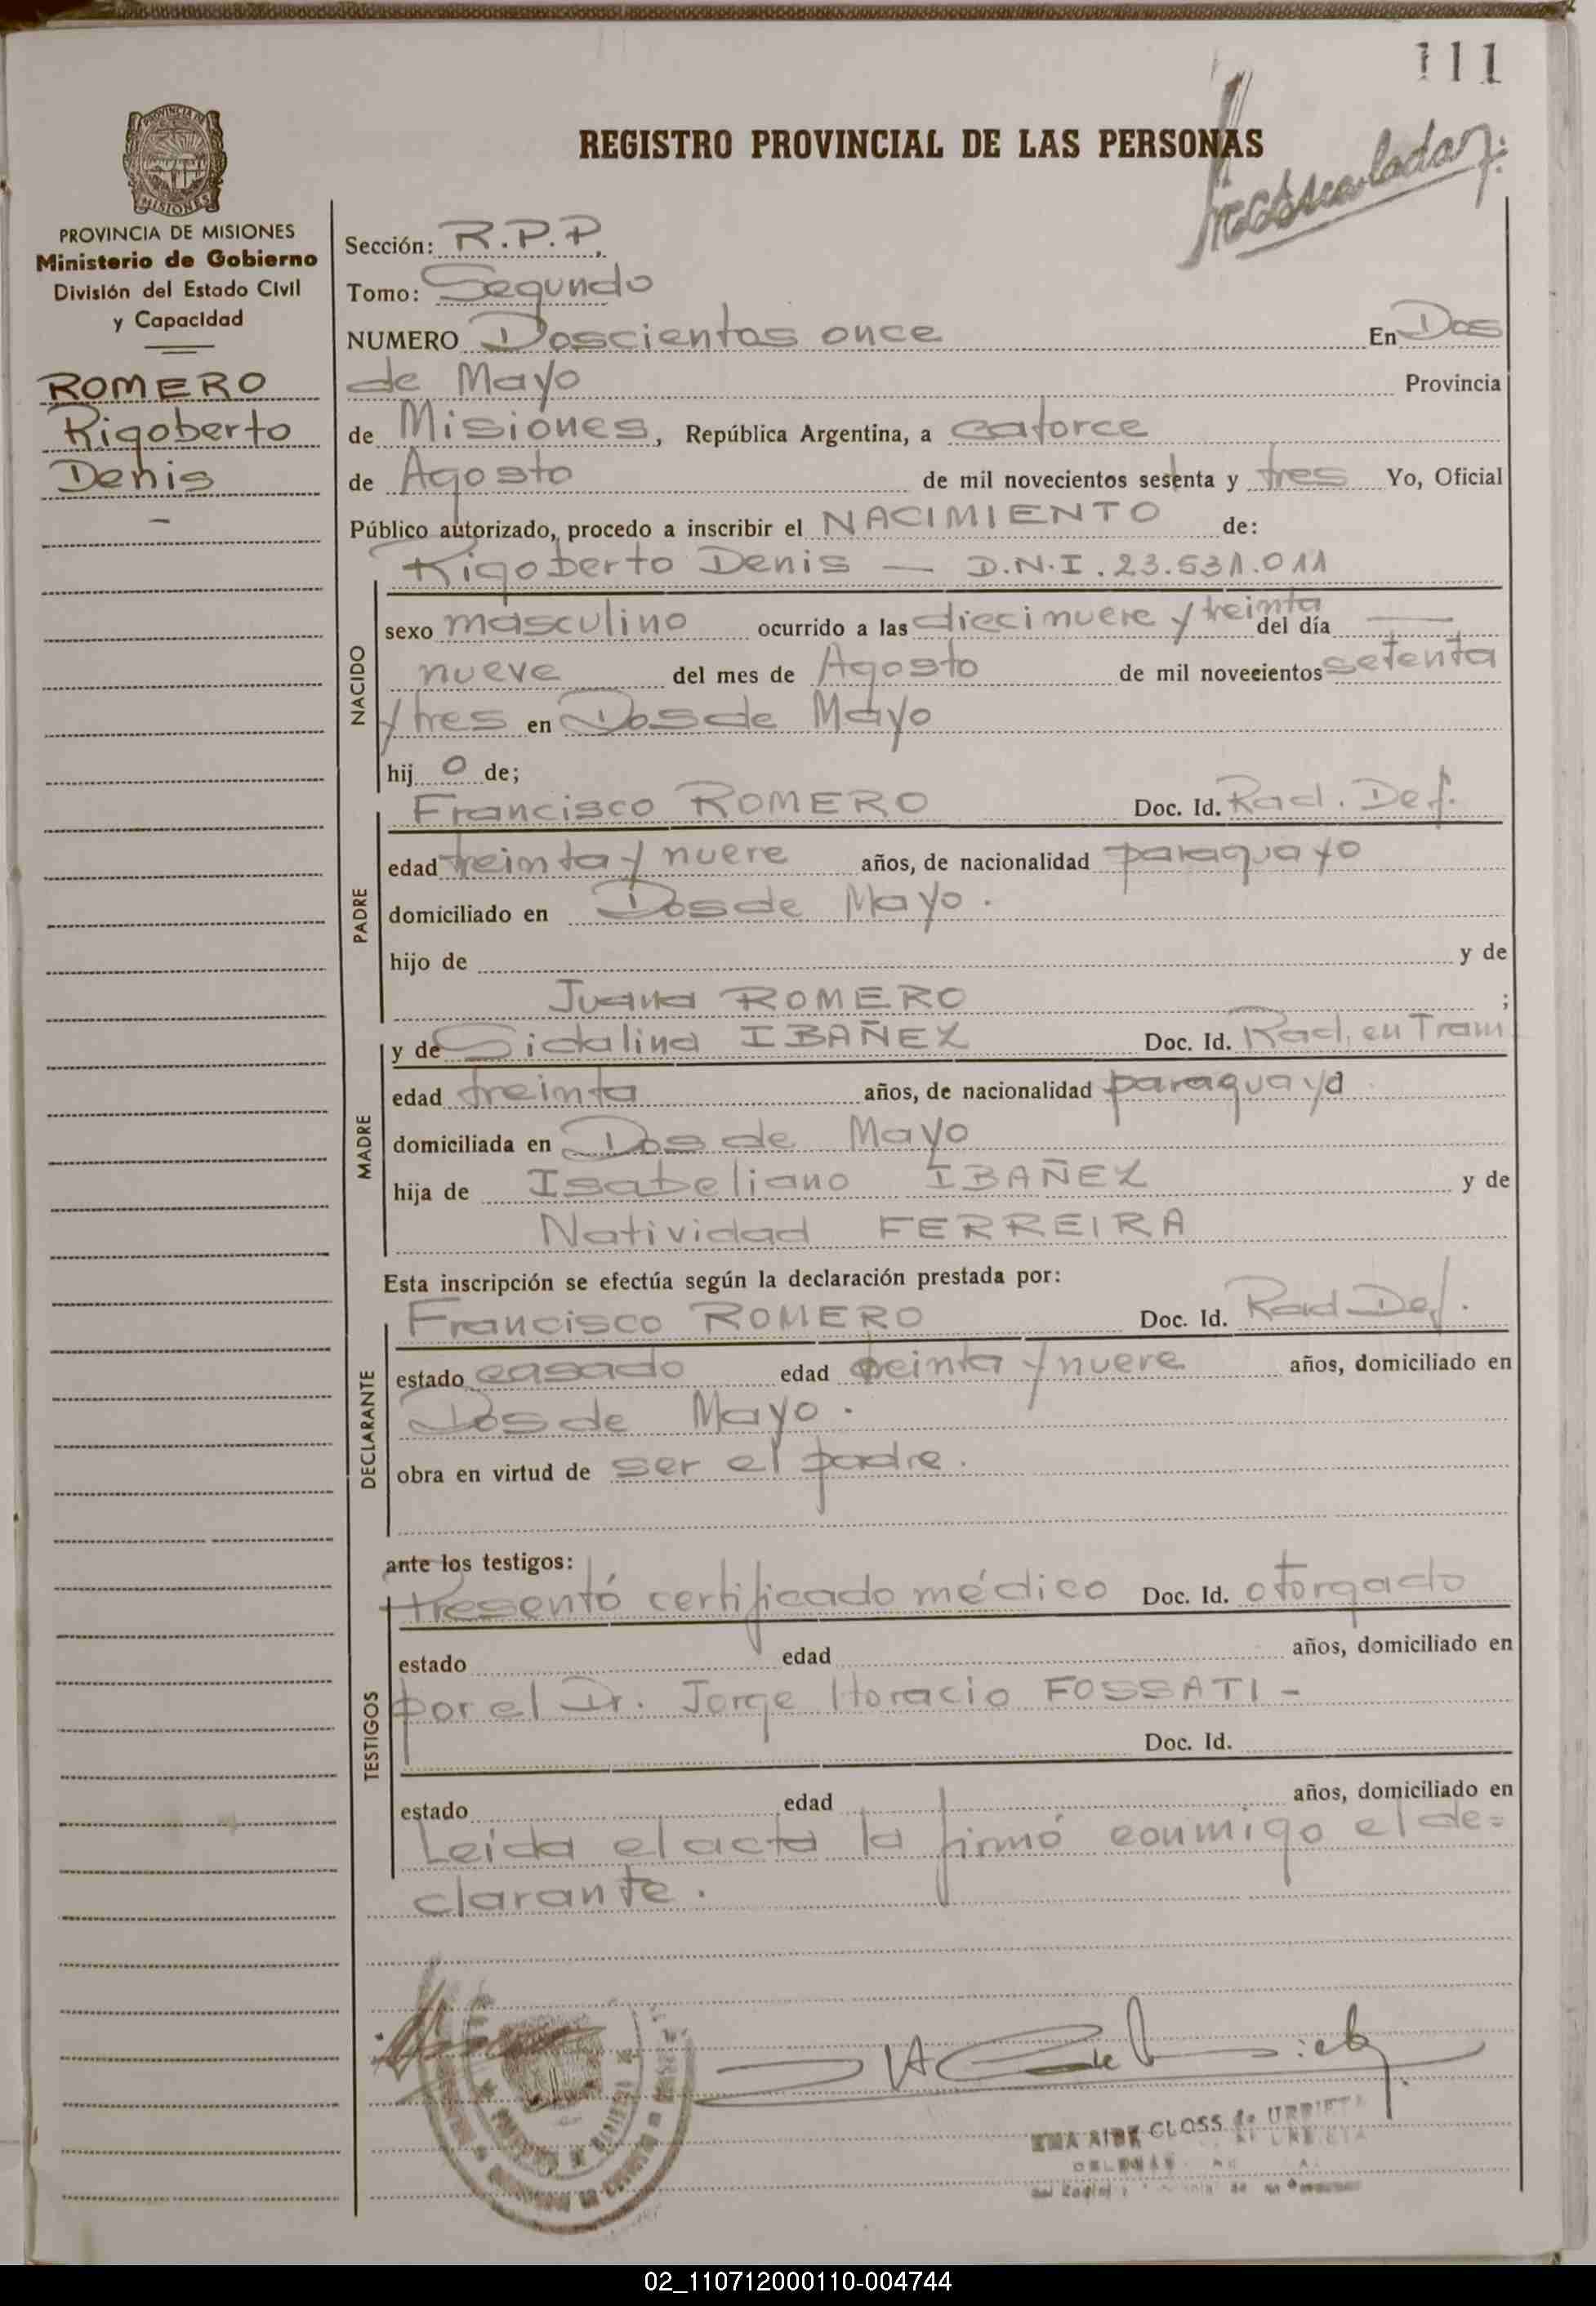 111
REGISTRO PROVINCIAL DE LAS PERSONAS
PROVINCIA DE MISIONES
Ministerio de Gobierno
División del Estado Civil
y Capacidad
ROMERO
Rigoberto
Denis
Sección: R.P.P.
Tomo: Segundo
NUMERO Doscientos once En Dos
de Mayo Provincia
de Misiones, República Argentina, a catorce
de Agosto de mil novecientos setenta y tres Yo, Oficial
Público autorizado, procedo a inscribir el NACIMIENTO de:
Rigoberto Denis — D.N.I. 23.531.011
NACIDO
sexo masculino ocurrido a las diecinueve y treinta del día
nueve del mes de Agosto de mil novecientos setenta
y tres en Dos de Mayo
hij o de;
PADRE
Francisco ROMERO Doc. Id. Rad. Def.
edad treinta y nueve años, de nacionalidad paraguayo
domiciliado en Dos de Mayo.
hijo de y de
Juana ROMERO ;
MADRE
y de Sidalina IBAÑEZ Doc. Id. Rad. en Tram
edad treinta años, de nacionalidad paraguaya
domiciliada en Dos de Mayo
hija de Isabeliano IBAÑEZ y de
Natividad FERREIRA
Esta inscripción se efectúa según la declaración prestada por:
DECLARANTE
Francisco ROMERO Doc. Id. Rad Def.
estado casado edad treinta y nueve años, domiciliado en
Dos de Mayo.
obra en virtud de ser el padre.
ante los testigos:
TESTIGOS
Presentó certificado médico Doc. Id. otorgado
estado edad años, domiciliado en
por el Dr. Jorge Horacio FOSSATI -
Doc. Id.
estado edad años, domiciliado en
Leida el acta la firmó conmigo el de=
clarante.
CLOSS de URRIETA
02_110712000110-004744